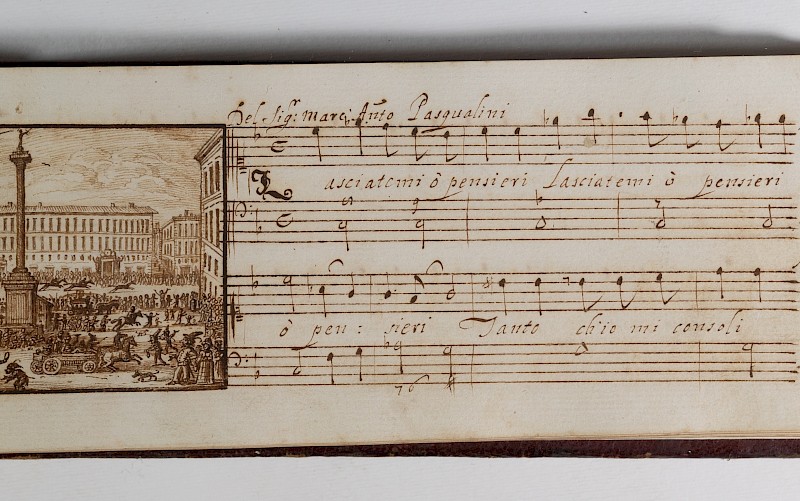 Del Sigr: Marc: Anto Pasqualini
Lasciatemi ò pensieri Lasciatemi ò pensieri
ò pen: sieri Tanto ch'io mi consoli
7 6 #